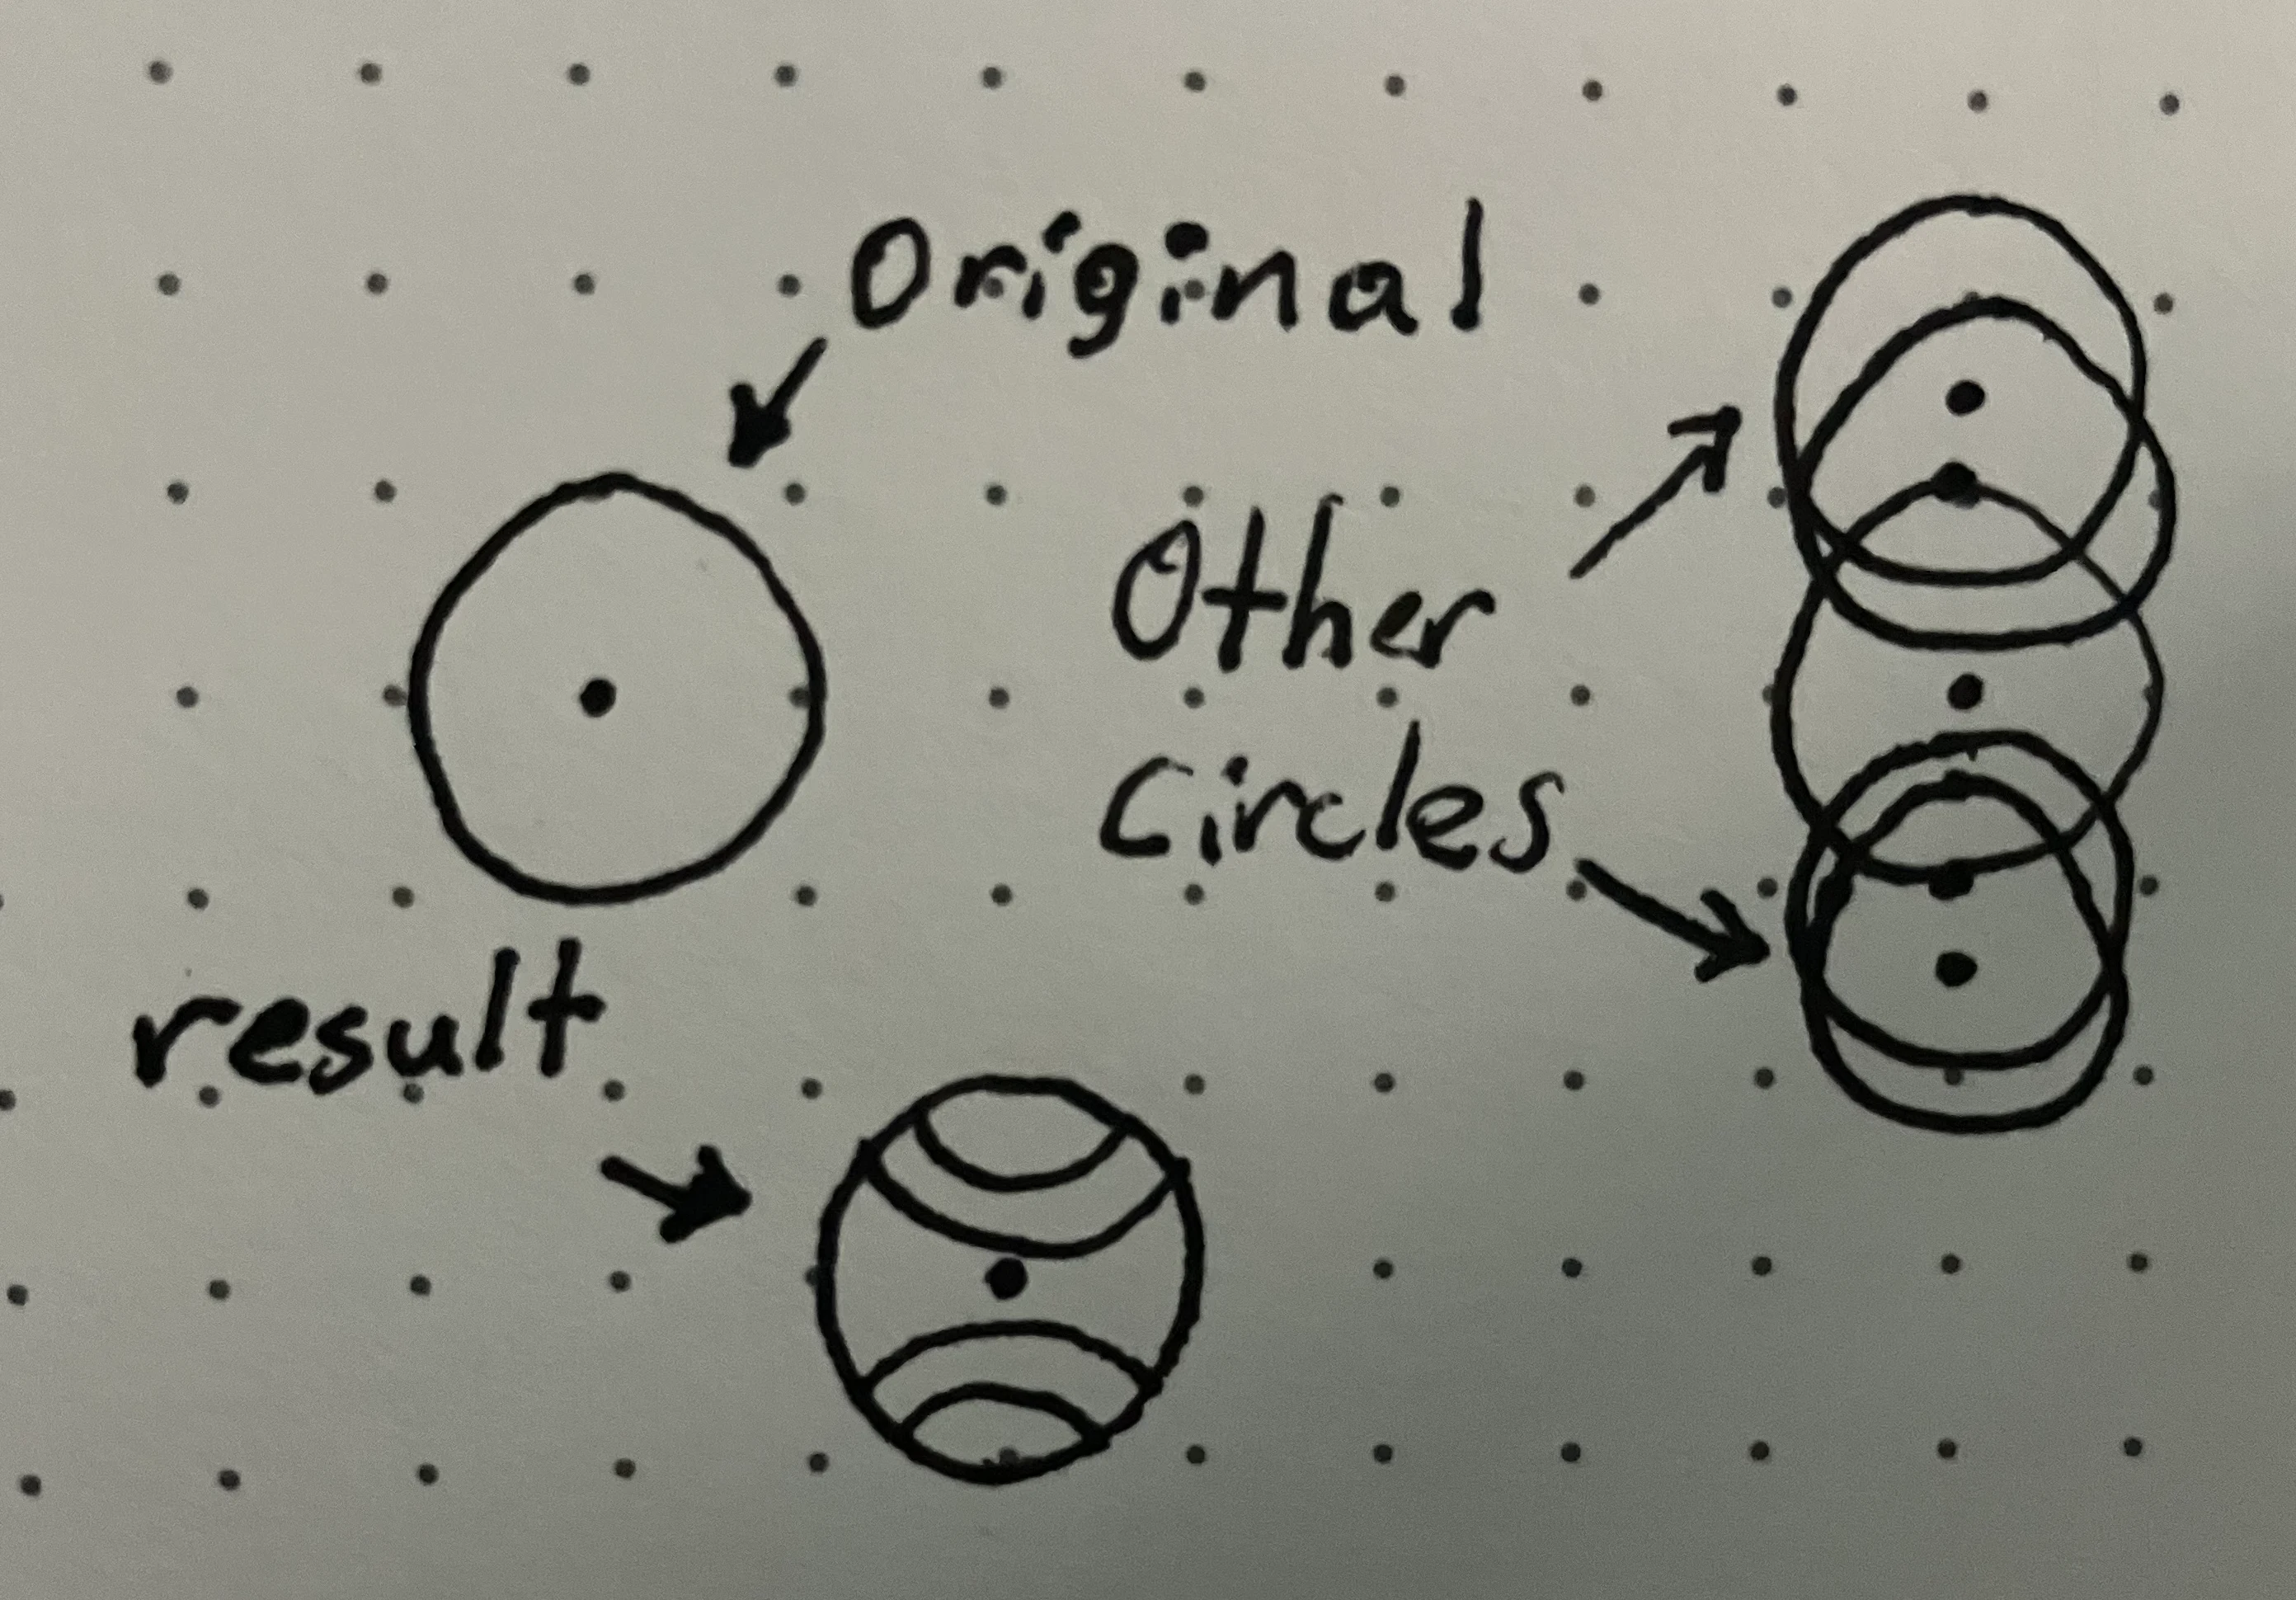 Original
Other
Circles
result